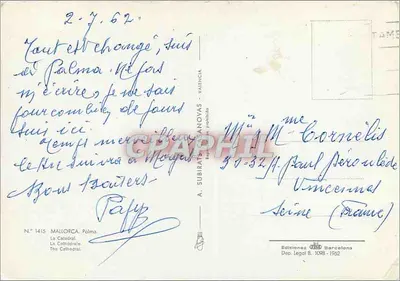 2-7-62.
Tout est changé, suis
à Palma. Ne pas
m'écrire, je ne sais
pour combien de jours
suis ici.
Temps merveilleux
Bons baisers.
Papy
Nº 1415 MALLORCA. Palma.
La Catedral.
La Cathédrale.
The Cathedral.
A. SUBIRATS CASANOVAS - VALENCIA
CPARHIL
Mr & Mme Cornélis
30-32 r. Paul Déroulède
Vincennes
Seine (France)
Ediciones Barcelona
Dep. Legal B. 1962